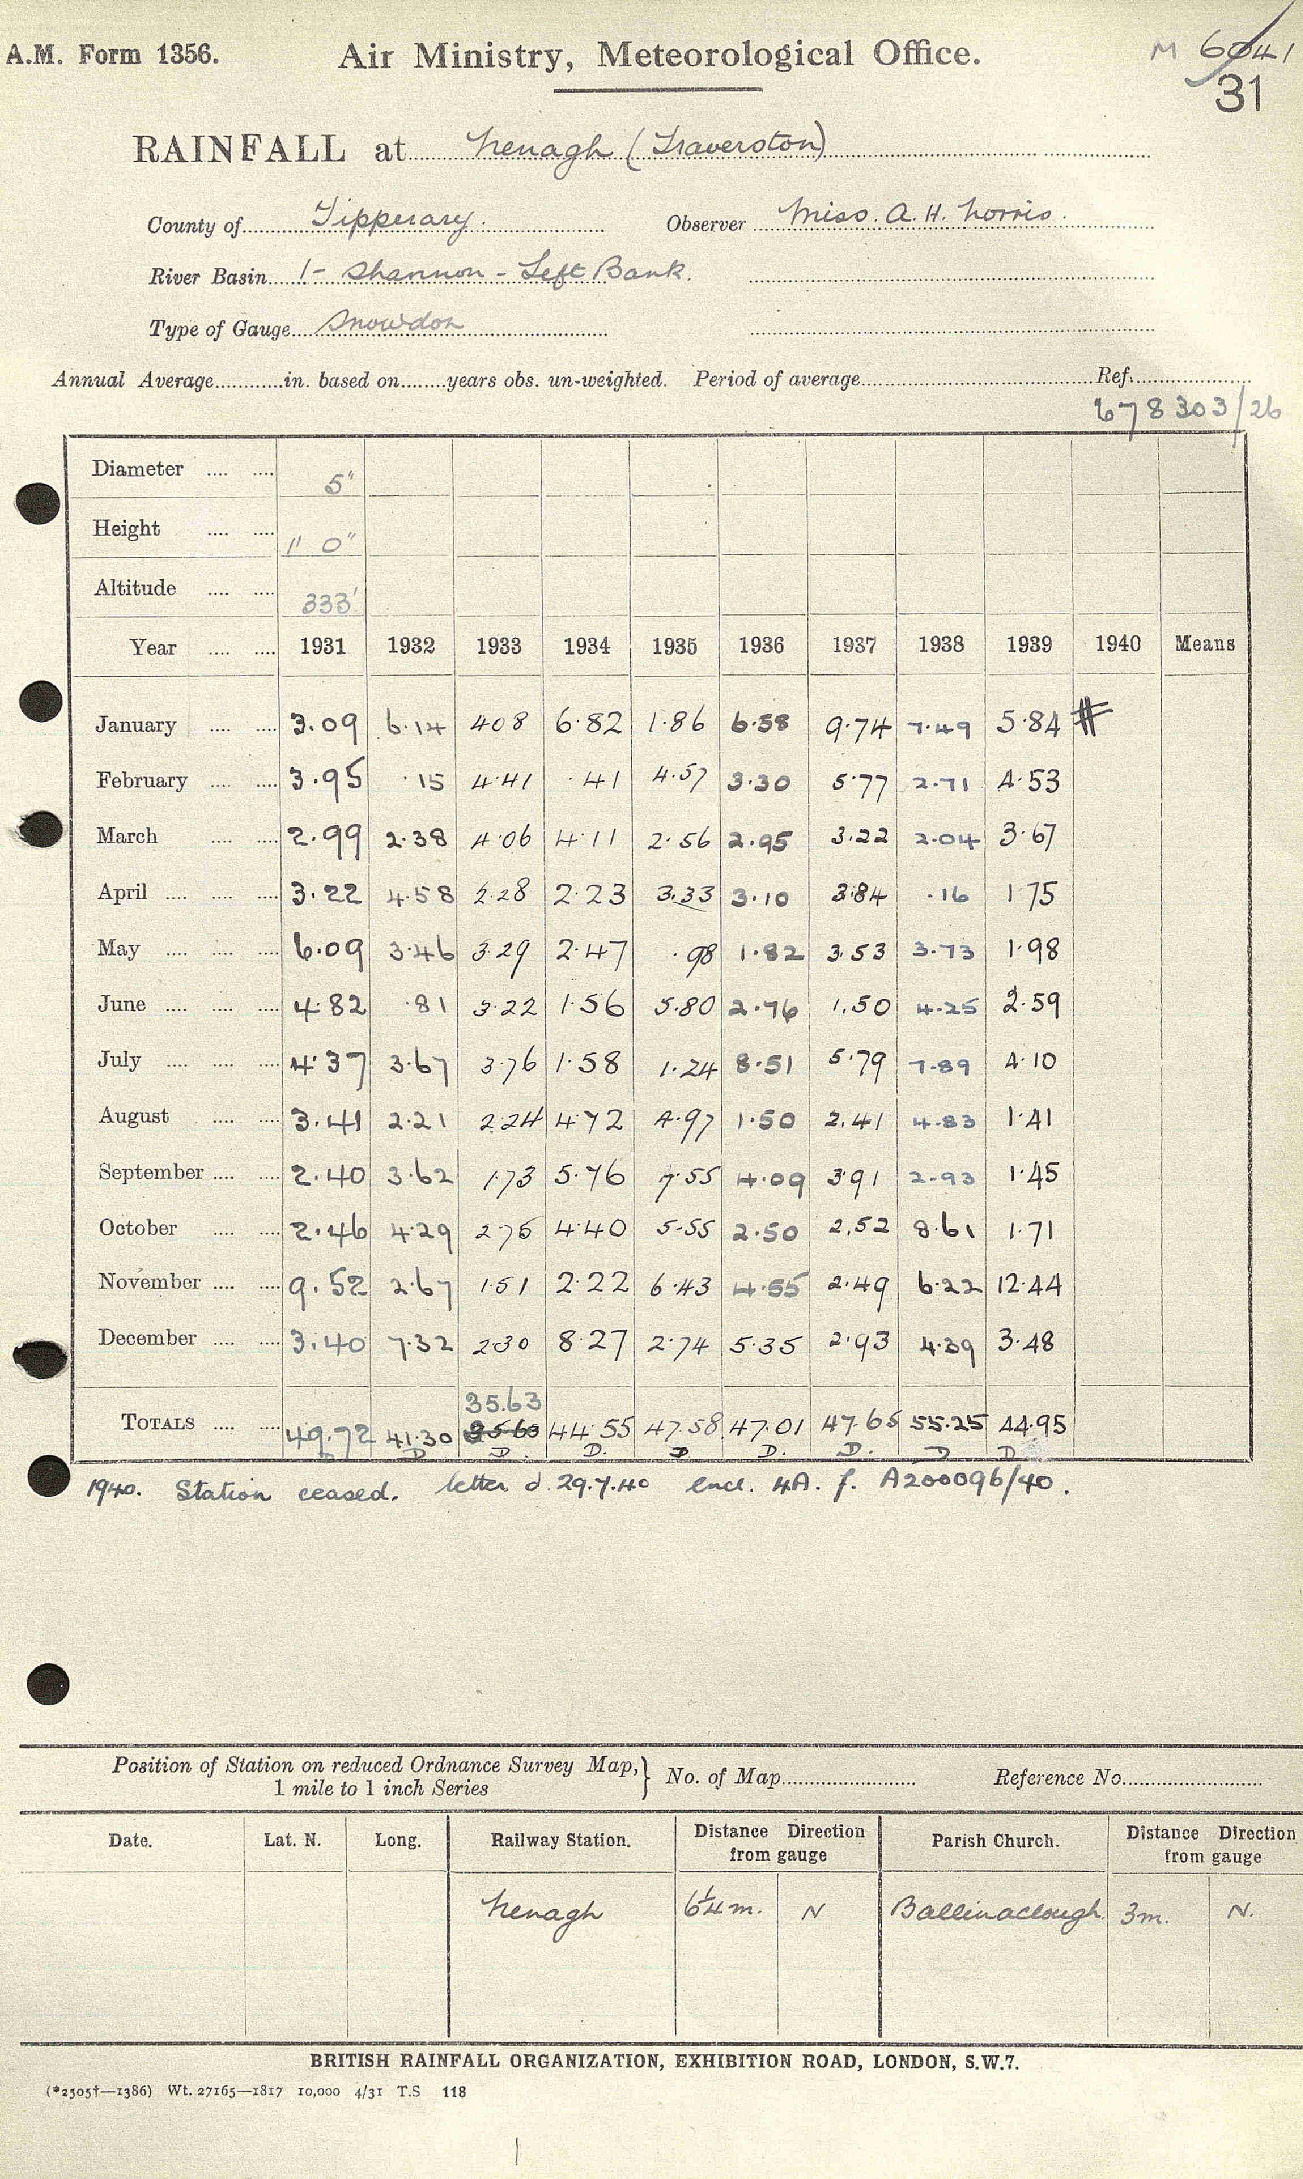 A.M. Form 1356. Air Ministry, Meteorological Office. M 6041
31
RAINFALL at Nenagh (Traverston)
County of Tipperary. Observer Miss. A. H. Norris.
River Basin 1- Shannon - Left Bank.
Type of Gauge Snowdon
Annual Average in. based on years obs. un-weighted. Period of average Ref.
678303/26
Diameter 5"
Height 1' 0"
Altitude 333'
Year 1931 1932 1933 1934 1935 1936 1937 1938 1939 1940 Means
January 3.09 6.14 4.08 6.82 1.86 6.58 9.74 7.49 5.84 #
February 3.95 .15 4.41 .41 4.57 3.30 5.77 2.71 4.53
March 2.99 2.38 4.06 4.11 2.56 2.95 3.22 2.04 3.67
April 3.22 4.58 2.28 2.23 3.33 3.10 3.84 .16 1.75
May 6.09 3.46 3.29 2.47 .98 1.82 3.53 3.73 1.98
June 4.82 .81 3.22 1.56 5.80 2.76 1.50 4.25 2.59
July 4.37 3.67 3.76 1.58 1.24 8.51 5.79 7.89 4.10
August 3.41 2.21 2.24 4.72 4.97 1.50 2.41 4.83 1.41
September 2.40 3.62 1.73 5.76 7.55 4.09 3.91 2.93 1.45
October 2.46 4.29 2.75 4.40 5.55 2.50 2.52 8.61 1.71
November 9.52 2.67 1.51 2.22 6.43 4.55 2.49 6.22 12.44
December 3.40 7.32 2.30 8.27 2.74 5.35 2.93 4.39 3.48
35.63
TOTALS 49.72 41.30 35.60 44.55 47.58 47.01 47.65 55.25 44.95
D D D. D. D D. D. D D
1940. Station ceased. letter d. 29.7.40 encl. 4A. f. A200096/40.
Position of Station on reduced Ordnance Survey Map, } No. of Map Reference No.
1 mile to 1 inch Series
Date. Lat. N. Long. Railway Station. Distance Direction from gauge Parish Church. Distance Direction from gauge
Nenagh 6¼ m. N Ballinaclough 3m. N.
BRITISH RAINFALL ORGANIZATION, EXHIBITION ROAD, LONDON, S.W.7.
(*2505†—1386) Wt. 27165—1817 10,000 4/31 T.S 118